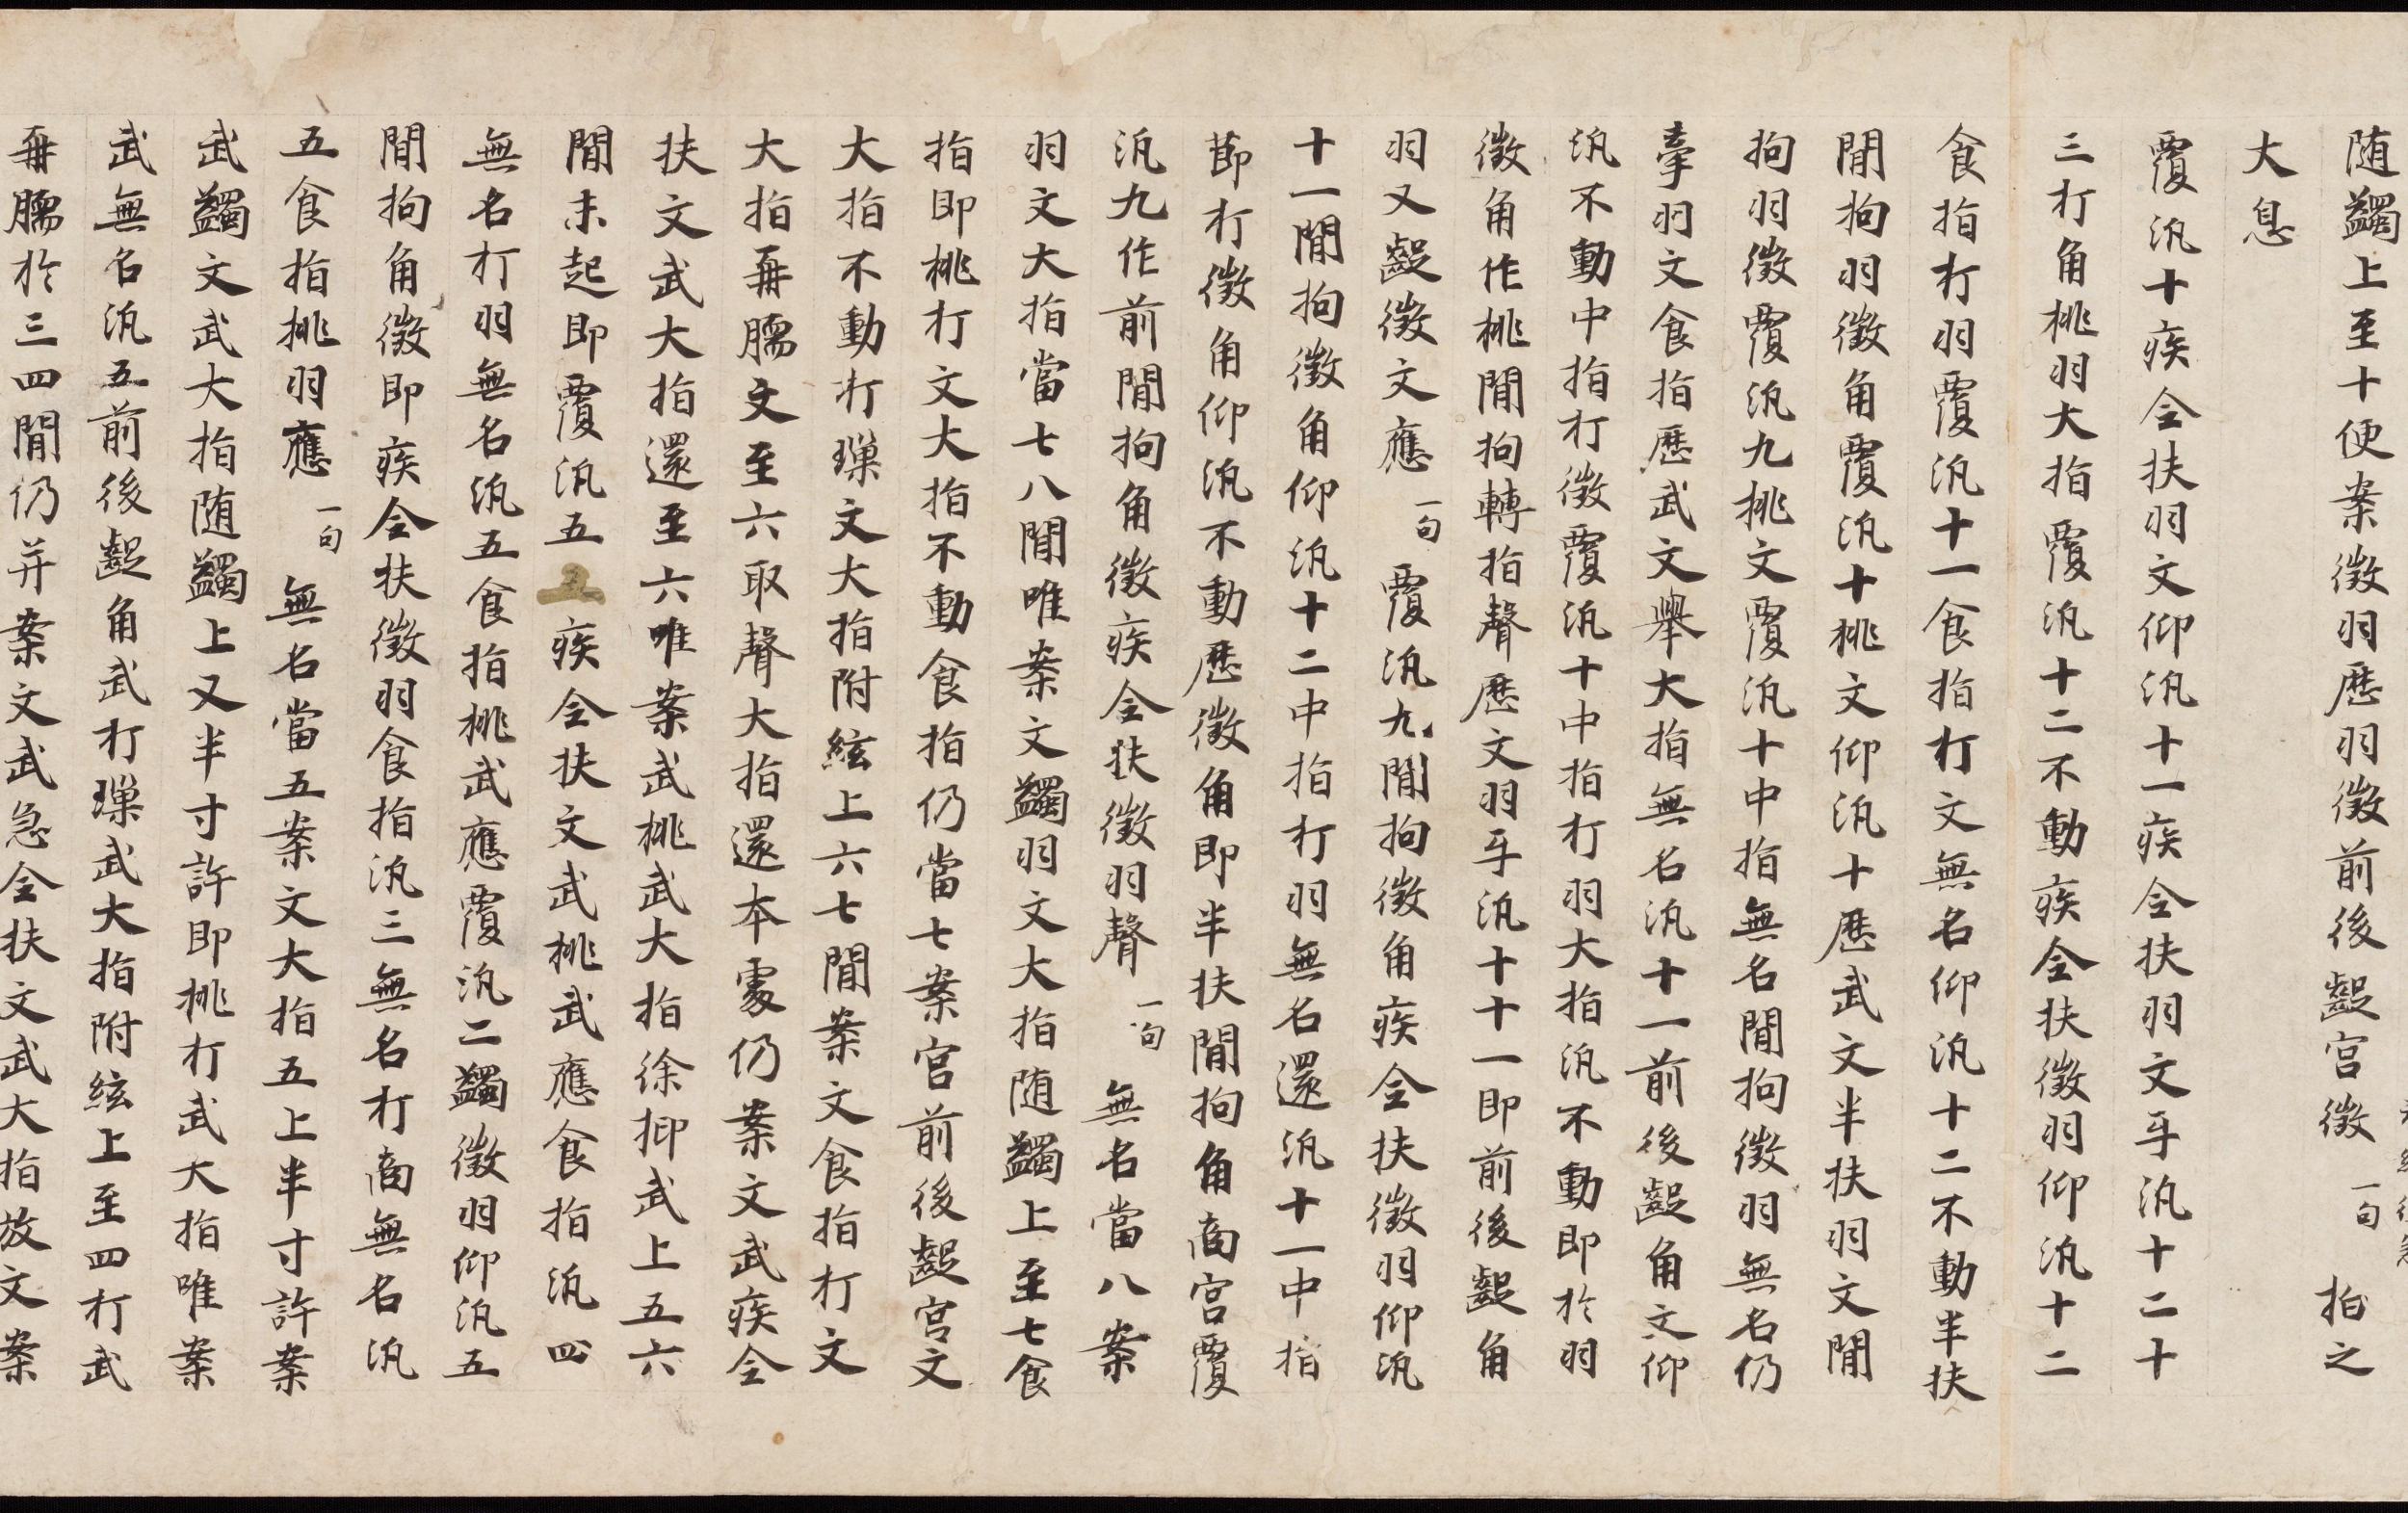 随蠲上至十便案徵羽歷羽徵前後齪宮徵一句 拍之
大息
覆汎十疾全扶羽文仰汎十一疾全扶羽文牙汎十二十
三打角桃羽大指覆汎十二不動疾全扶徵羽仰汎十二
食指打羽覆汎十一食指打文無名仰汎十二不動半扶
閒拘羽徵角覆汎十桃文仰汎十歷武文半扶羽文閒
拘羽徵覆汎九桃文覆汎十中指無名閒拘徵羽無名仍
牽羽文食指歷武文舉大指無名汎十一前後齪角文仰
汎不動中指打徵覆汎十中指打羽大指汎不動即扵羽
徵角作桃閒拘轉指聲歷文羽牙汎十十一即前後齪角
羽又齪徵文應一句 覆汎九閒拘徵角疾全扶徵羽仰汎
十一閒拘徵角仰汎十二中指打羽無名還汎十一中指
莭打徵角仰汎不動歷徵角即半扶閒拘角商宮覆
汎九作前閒拘角徵疾全扶徵羽聲一句 無名當八案
羽文大指當七八閒唯案文蠲羽文大指随蠲上至七食
指即桃打文大指不動食指仍當七案宮前後齪宮文
大指不動打㻔文大指附絃上六七閒案文食指打文
大指再臑文至六取聲大指還本處仍案文武疾全
扶文武大指還至六唯案武桃武大指徐抑武上五六
閒未起即覆汎五五疾全扶文武桃武應食指汎四
無名打羽無名汎五食指桃武應覆汎二蠲徵羽仰汎五
閒拘角徵即疾全扶徵羽食指汎三無名打商無名汎
五食指桃羽應一句 無名當五案文大指五上半寸許案
武蠲文武大指随蠲上又半寸許即桃打武大指唯案
武無名汎五前後齪角武打㻔武大指附絃上至四打武
再臑扵三四閒仍并案文武急全扶文武大指放文案